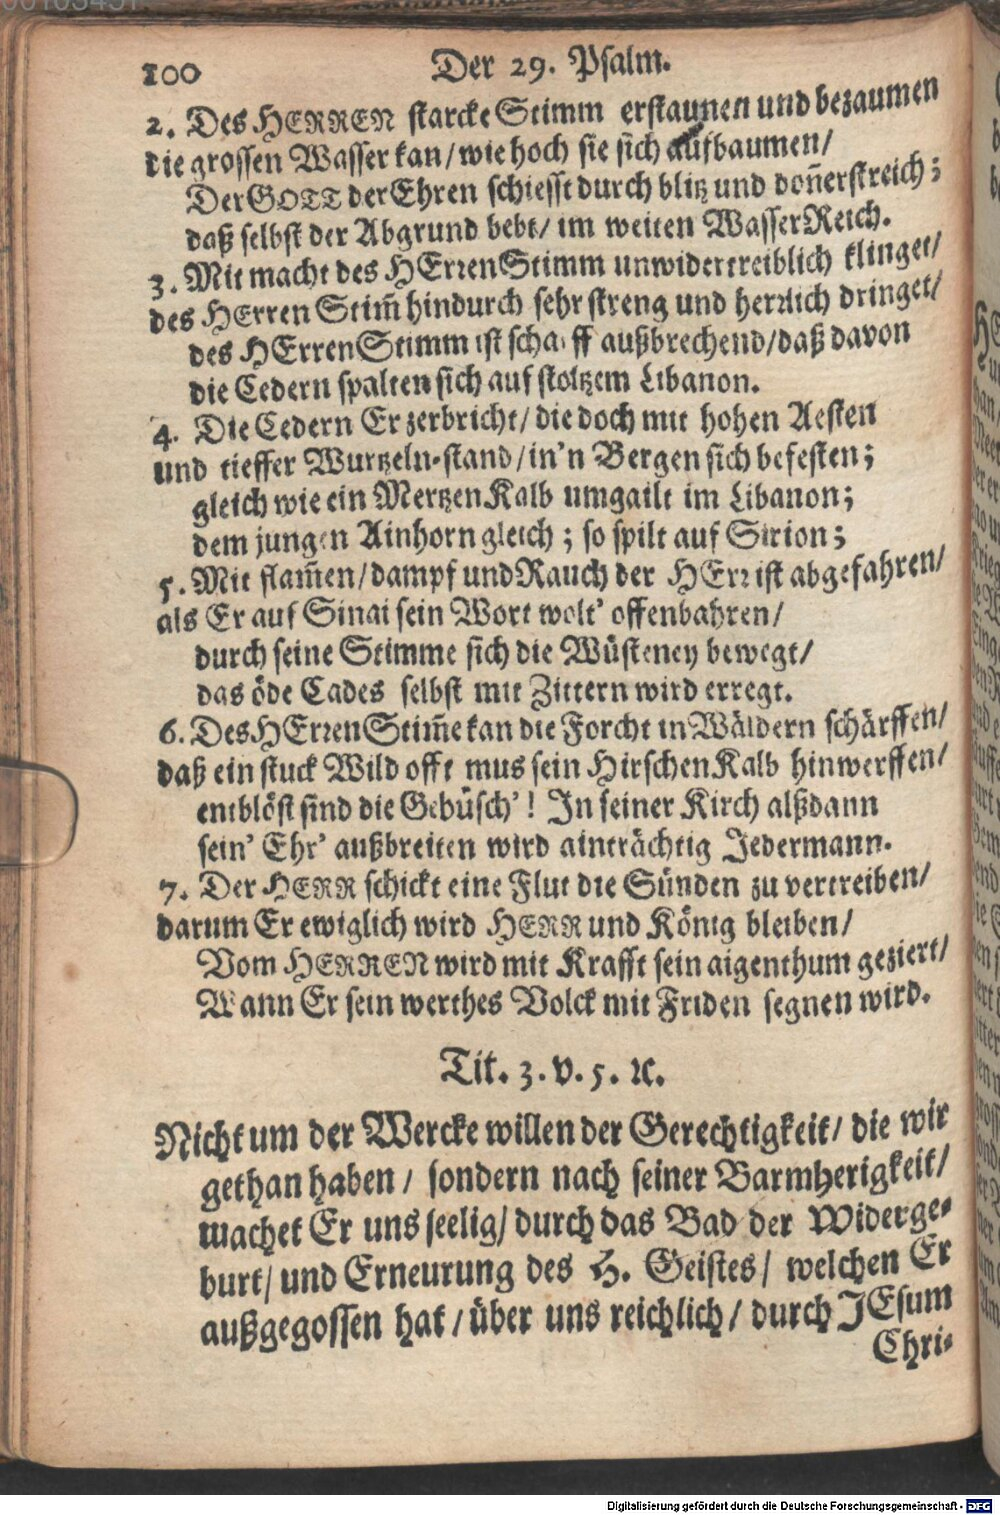 100 Der 29. Psalm.
2. Des HERREN starcke Stimm erstaunen und bezaumen
die grossen Wasser kan/ wie hoch sie sich aufbaumen/
Der GOTT der Ehren schiesst durch blitz und don̄erstreich;
daß selbst der Abgrund bebt/ im weiten WasserReich.
3. Mit macht des HErren Stimm unwidertreiblich klinget/
des HErren Stim̄ hindurch sehr streng und herrlich dringet/
des HErren Stimm ist scharff außbrechend/ daß davon
die Cedern spalten sich auf stoltzem Libanon.
4. Die Cedern Er zerbricht/ die doch mit hohen Aesten
und tieffer Wurtzeln-stand/ in'n Bergen sich befesten;
gleich wie ein MertzenKalb umgailt im Libanon;
dem jungen Ainhorn gleich; so spilt auf Sirion;
5. Mit flam̄en/ dampf und Rauch der HErr ist abgefahren/
als Er auf Sinai sein Wort wolt' offenbahren/
durch seine Stimme sich die Wüsteney bewegt/
das öde Cades selbst mit Zittern wird erregt.
6. Des HErren Stim̄e kan die Forcht in Wäldern schärffen/
daß ein stuck Wild offt mus sein HirschenKalb hinwerffen/
entblöst sind die Gebüsch'! In seiner Kirch alßdann
sein' Ehr' außbreiten wird ainträchtig Jedermann.
7. Der HERR schickt eine Flut die Sünden zu vertreiben/
darum Er ewiglich wird HERR und König bleiben/
Vom HERREN wird mit Krafft sein aigenthum geziert/
Wann Er sein werthes Volck mit Friden segnen wird.
Tit. 3. v. 5. ꝛc.
Nicht um der Wercke willen der Gerechtigkeit/ die wir
gethan haben/ sondern nach seiner Barmherigkeit/
machet Er uns seelig/ durch das Bad der Widerge-
burt/ und Erneurung des H. Geistes/ welchen Er
außgegossen hat/ über uns reichlich/ durch JEsum
Chri-
Digitalisierung gefördert durch die Deutsche Forschungsgemeinschaft - DFG